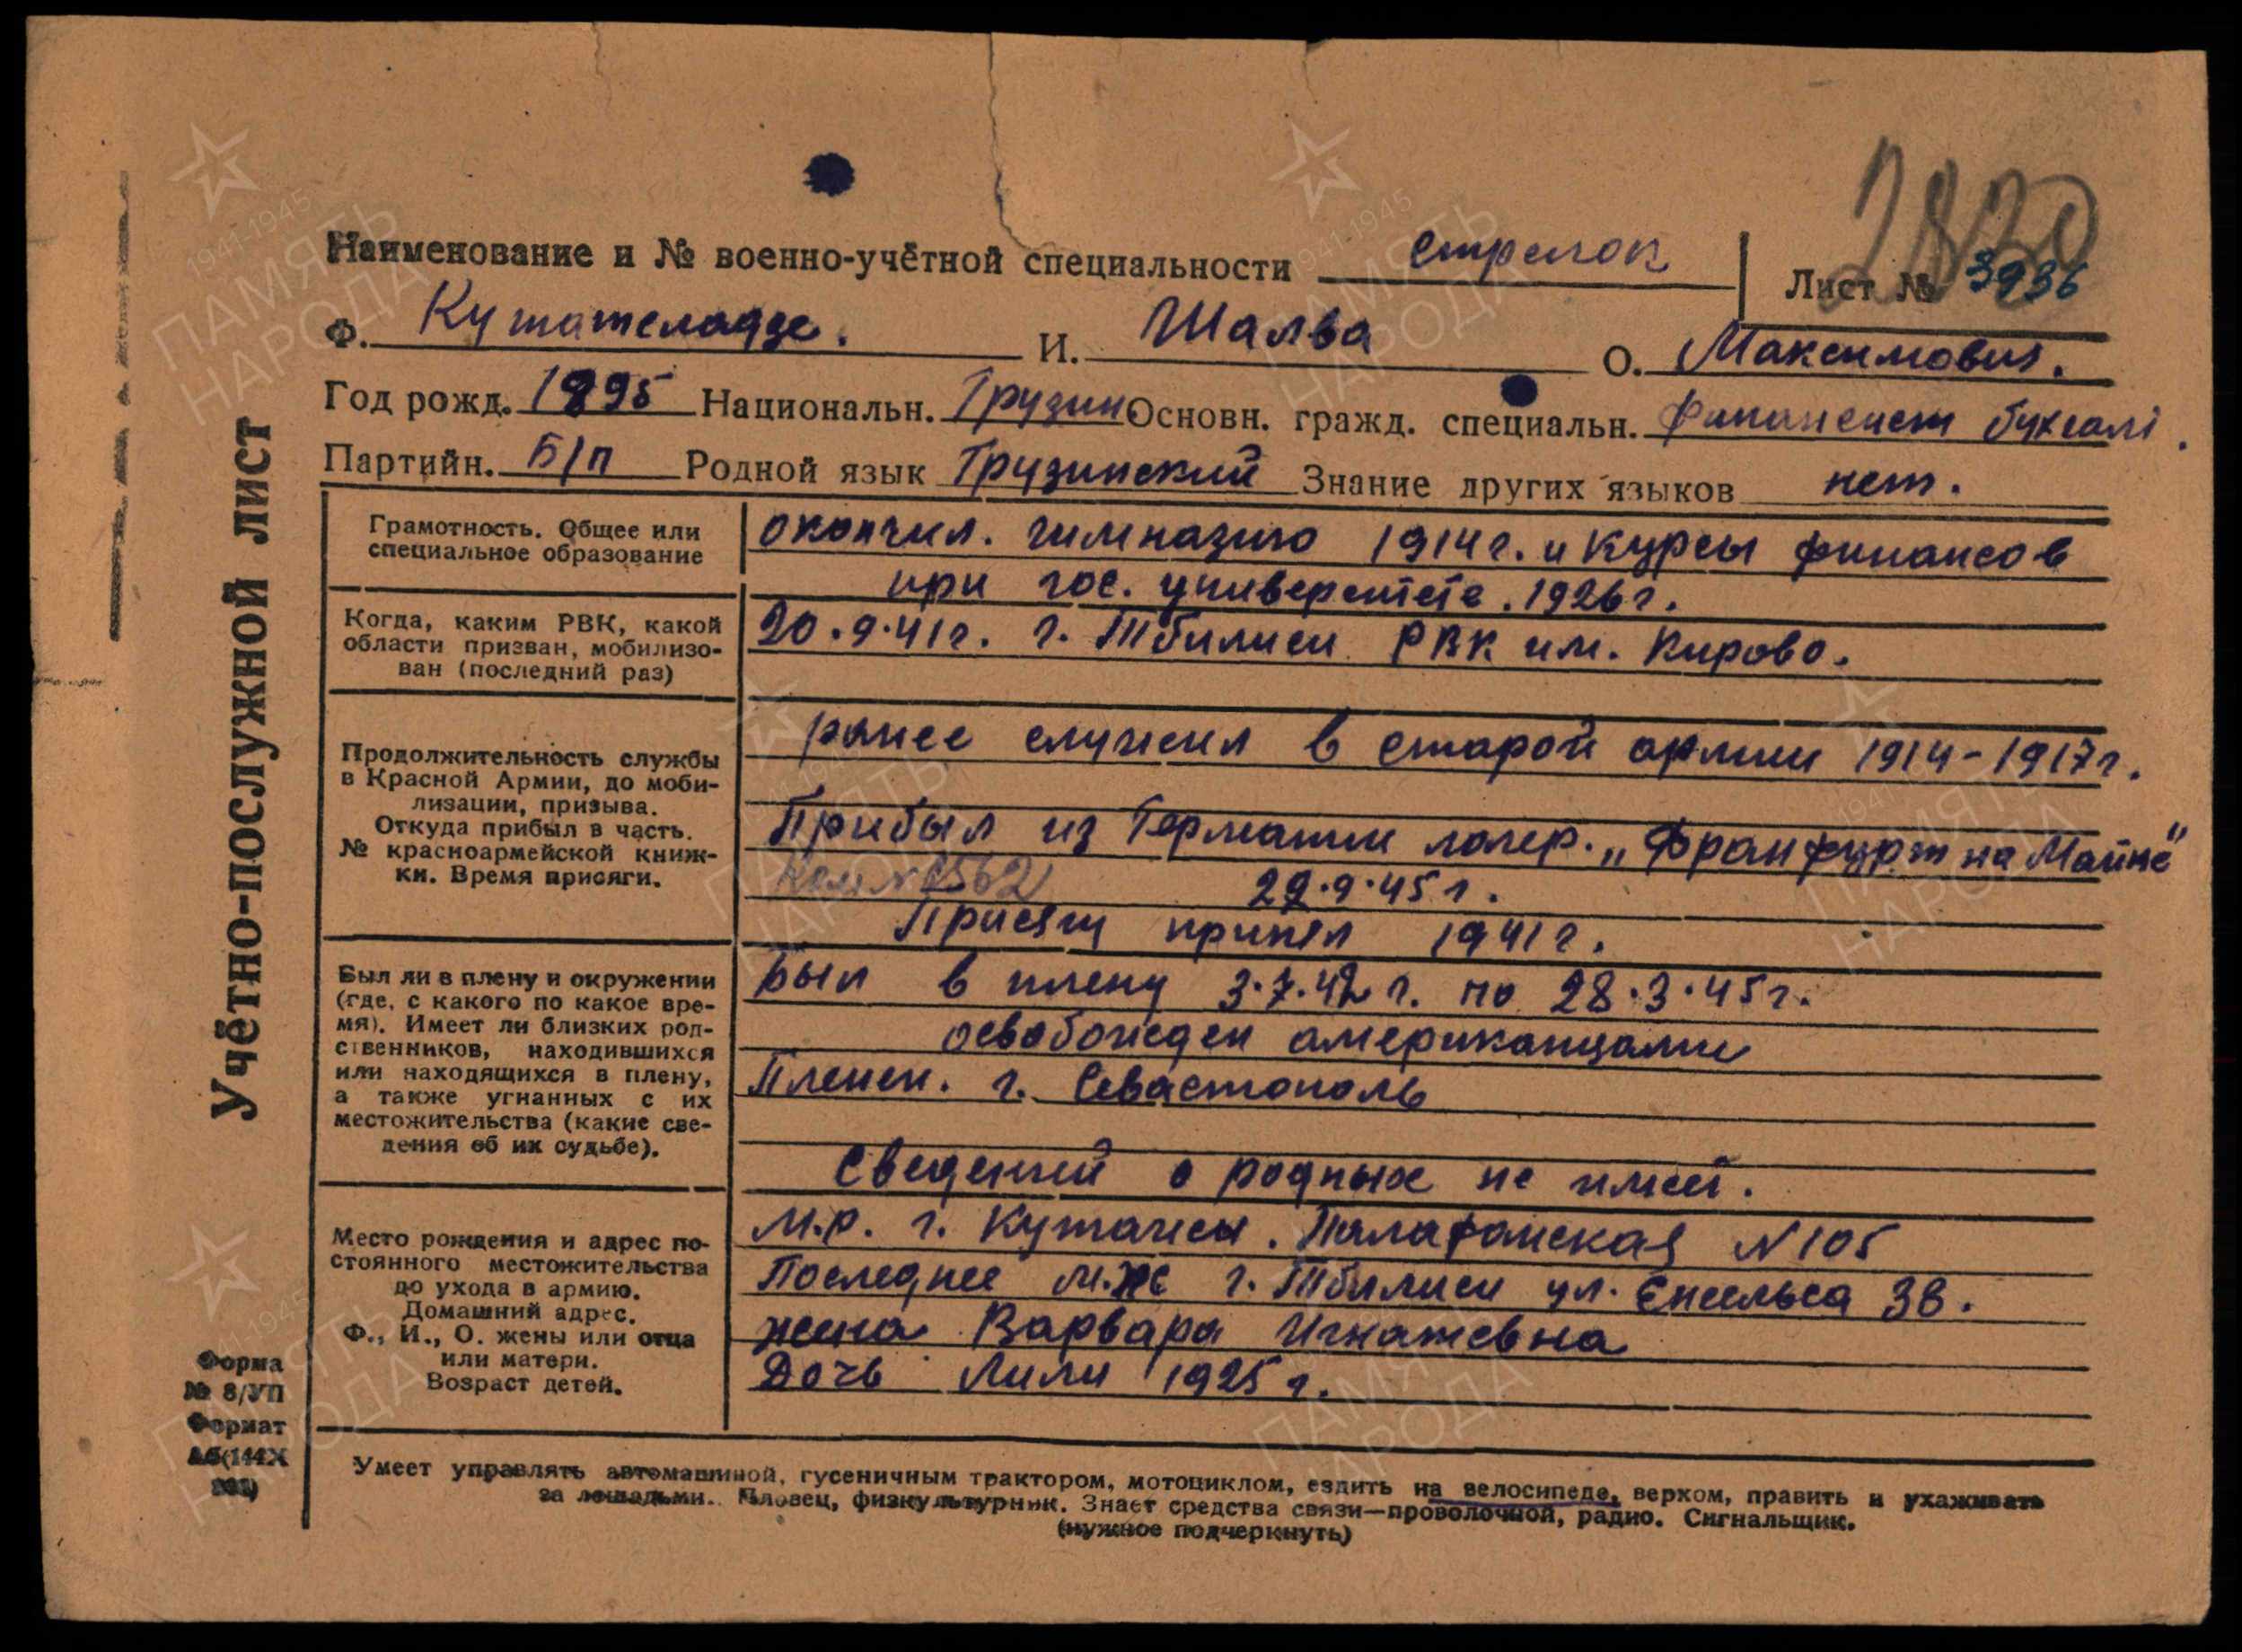 2820
Наименование и № военно-учётной специальности стрелок
Лист № 3936
Ф. Кутателадзе. И. Шалва О. Максимович.
Год рожд. 1895 Национальн. Грузин Основн. гражд. специальн. Финансист бухгалт.
Партийн. Б/п Родной язык Грузинский Знание других языков нет.
Учётно-послужной лист
Грамотность. Общее или
специальное образование
окончил. гимназию 1914 г. и курсы финансов
при гос. университете. 1926 г.
Когда, каким РВК, какой
области призван, мобилизо-
ван (последний раз)
20.9.41 г. г. Тбилиси РВК им. Кирово.
Продолжительность службы
в Красной Армии, до моби-
лизации, призыва.
Откуда прибыл в часть.
№ красноармейской книж-
ки. Время присяги.
ранее служил в старой армии 1914-1917 г.
Прибыл из Германии лагер. „Франфурт на Майне"
29.9.45 г.
Присягу принял 1941 г.
Был ли в плену и окружении
(где, с какого по какое вре-
мя). Имеет ли близких род-
ственников, находившихся
или находящихся в плену,
а также угнанных с их
местожительства (какие све-
дения об их судьбе).
был в плену 3.7.42 г. по 28.3.45 г.
освобожден американцами
Пленен. г. Севастополь
Сведений о родных не имеет.
Место рождения и адрес по-
стоянного местожительства
до ухода в армию.
Домашний адрес.
Ф., И., О. жены или отца
или матери.
Возраст детей.
М.р. г. Кутаиси. N 105
Последнее м.ж г. Тбилиси ул. Енгельса 38.
жена Варвара Игнатевна
Дочь Лили 1925 г.
Форма
№ 8/УП
Формат
А6(144Х
203)
Умеет управлять автомашиной, гусеничным трактором, мотоциклом, ездить на велосипеде, верхом, править и ухаживать
за лошадьми. Пловец, физкультурник. Знает средства связи—проволочной, радио. Сигнальщик.
(нужное подчеркнуть)
1941-1945
ПАМЯТЬ
НАРОДА